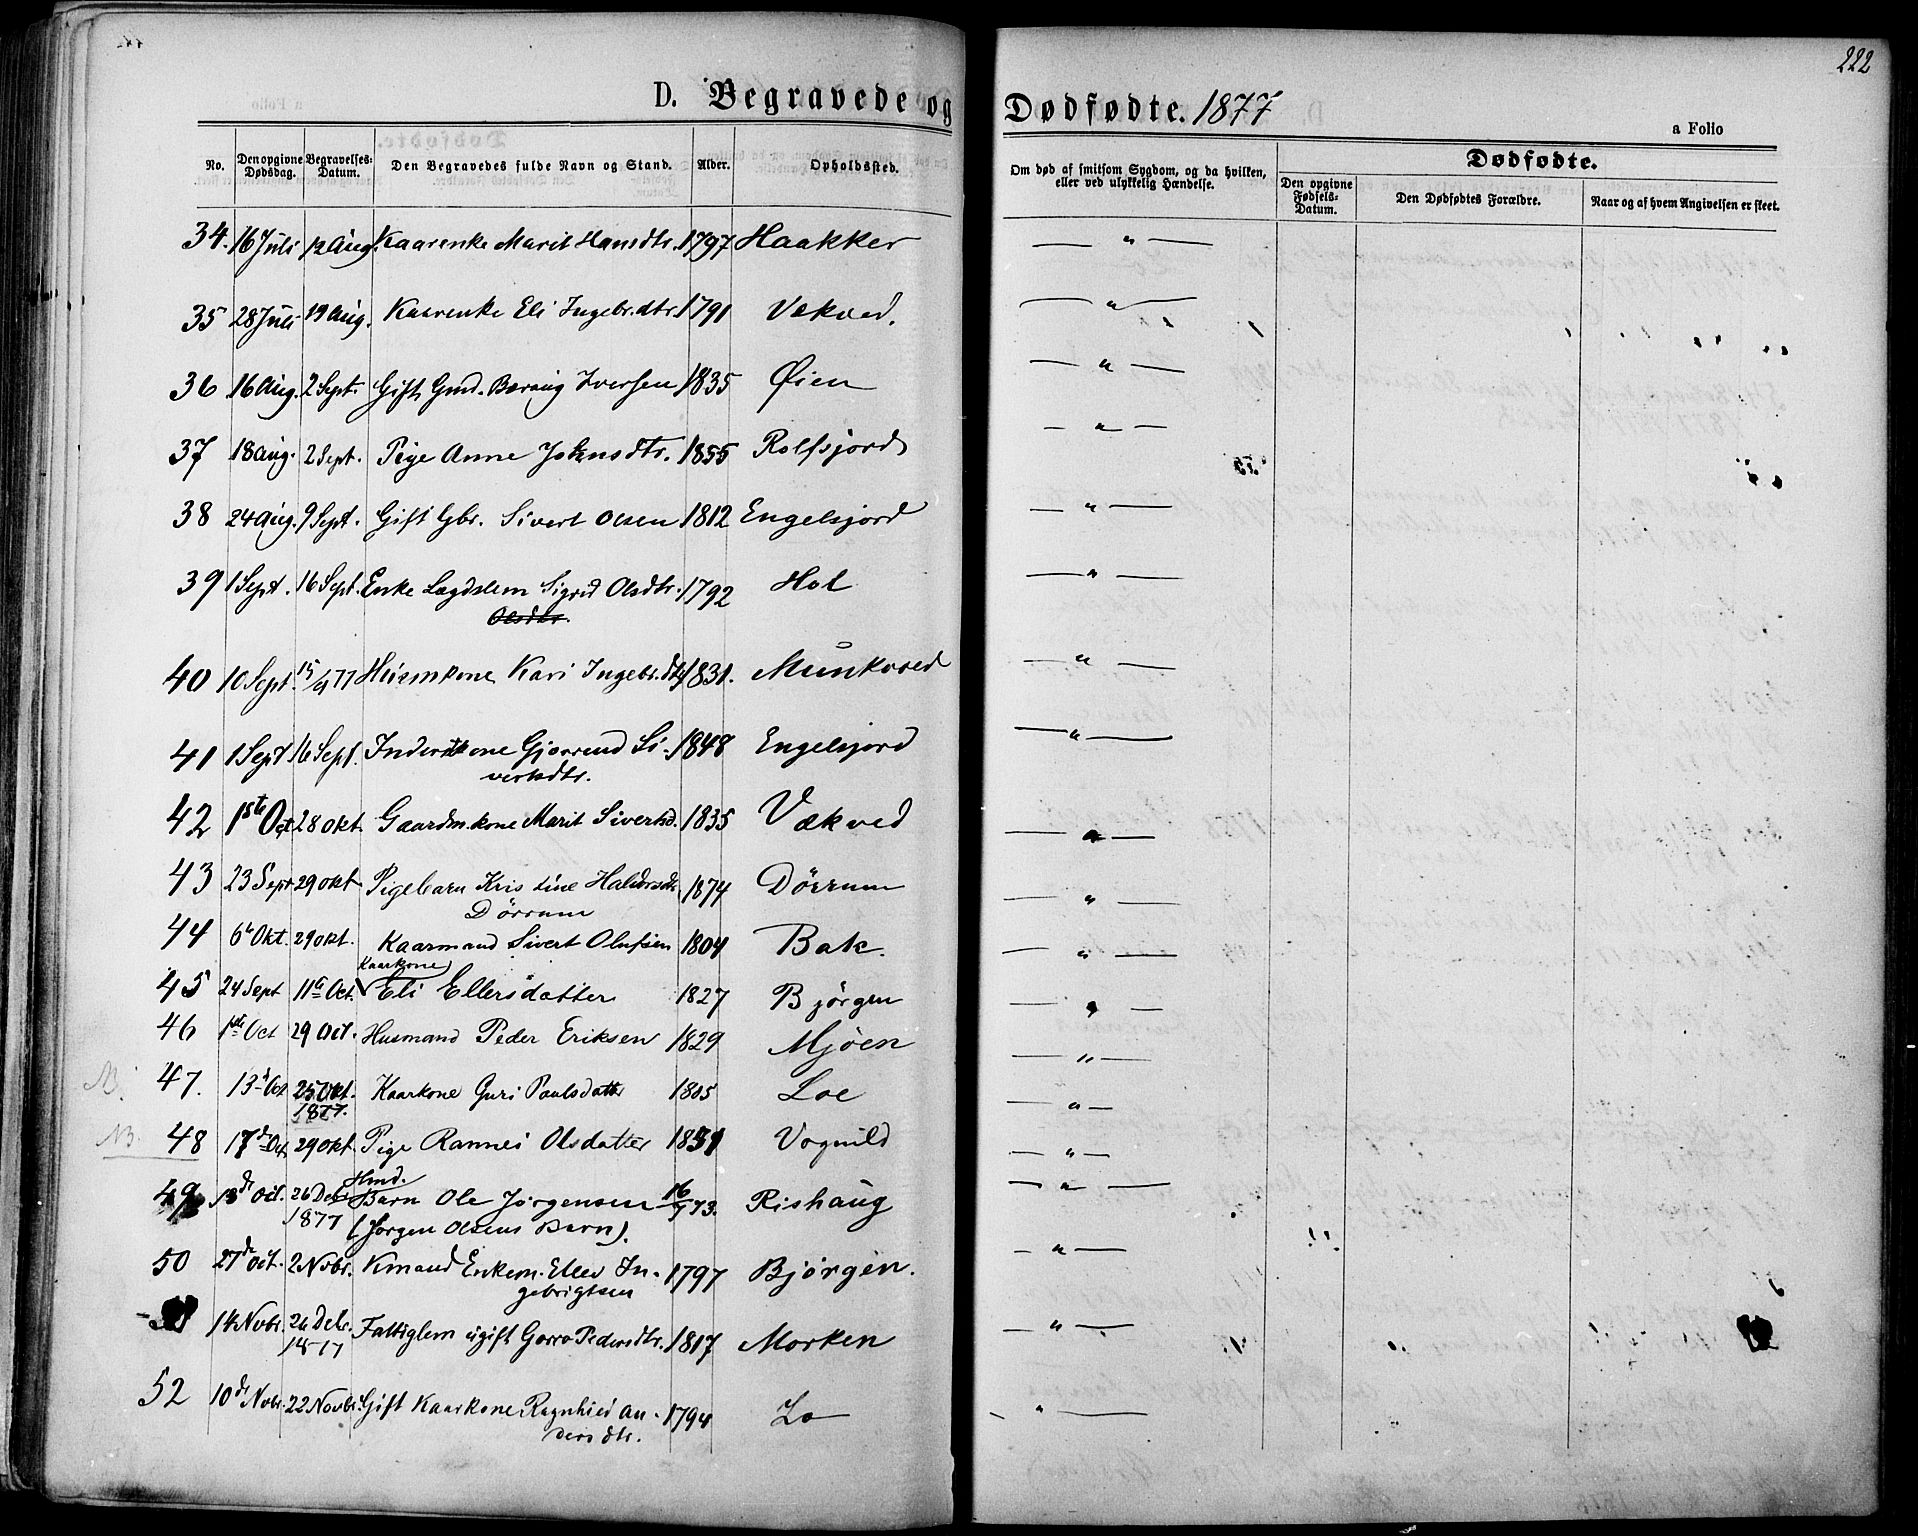 222
D. Begravede og Dødfødte. 1877
a Folio
No. Den opgivne Dødsdag. Begravelses-Datum. Den Begravedes fulde Navn og Stand. Alder. Opholdssted. Om død af smitsom Sygdom, og da hvilken, eller ved ulykkelig Hændelse. Dødfødte.
Den opgivne Fødsels-Datum. Den Dødfødtes Forældre. Naar og af hvem Angivelsen er skeet.
34. 16 Juli 12 Aug. Kaarenke Marit Hansdtr. 1797 Haakker — " —
35 28 Juli 19 Aug. Kaarenke Eli Ingebr.dtr. 1791 Vekved. — " —
36 16 Aug. 2 Sept. Gift Gmd. Iversen 1835 Øien — " —
37 18 Aug. 2 Sept. Pige Anne Johnsdtr. 1855 Rolfsjord — " —
38 24 Aug. 9 Sept. Gift Gbr. Sivert Olsen 1812 Engelsjord — " —
39 1 Sept. 16 Sept. Enke Lægdslem Sigrid Olsdtr. 1792 Hol — " —
Olsdtr.
40 10 Sept. 15/9 77 Huusmkone Kari Ingebr.dtr 1831. Munkvoed — " —
41 1 Sept 16 Sept. Inderstkone Gjørrund Si- 1848 Engelsjord — " —
vertsdtr.
42 1ste Oct 28 Okt. Gaardm.kone Marit Sivertsd. 1835 Vekved — " —
43 23 Sept 29 Okt Pigebarn Kristine Haldorsdr 1874 Dörrum — " —
Dörrum
44 6te Okt. 29 Okt. Kaarmand Sivert Olufsen 1804 Bak. — " —
Kaarkone
45 24 Sept 11te Oct. Eli Ellersdatter 1827 Björgen — " —
46 1ste Oct 29 Oct. Husmand Peder Eriksen 1829 Mjöen — " —
47. 13de Oct 25 Okt. Kaarkone Guri Paulsdatter 1805 Loe — " —
1877.
NB. 48 17de Oct 29 Okt. Pige Rannei Olsdatter 1851 Vognild — " —
Hmd.
49 13de Oct. 26 Debr Barn Ole Jörgensen 16/7 73. Rishaug — " —
1877 (Jörgen Olsens Barn).
50 27de Oct. 2 Novbr. Kmand Enkem. Ellev In- 1797 Björgen. — " —
gebrigtsen
14 Novbr. 26 Debr. Fattiglem ugift Gorro Pedersdtr. 1817 Morken — " —
1877
52 10de Novbr. 22 Novbr. Gift Kaarkone Ragnhild An- 1794 Lo — " —
dersdtr.